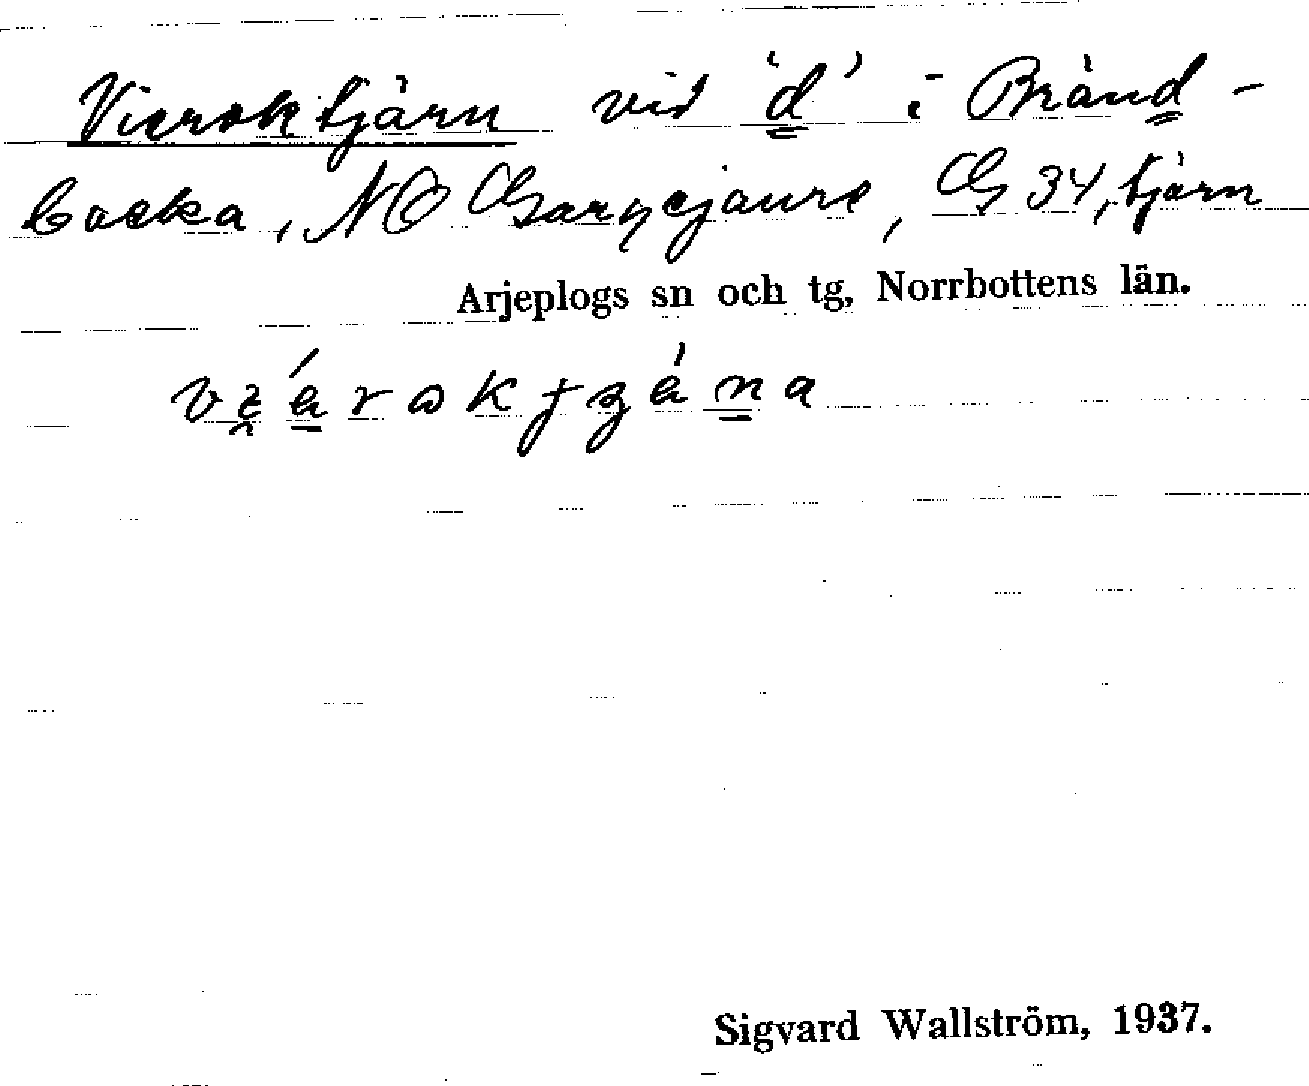 Vieroktjärn vid 'd' i Bränd-
backa, NO Garnejaure, G 34, tjärn
Arjeplogs sn och tg, Norrbottens län.
Sigvard Wallström, 1937.